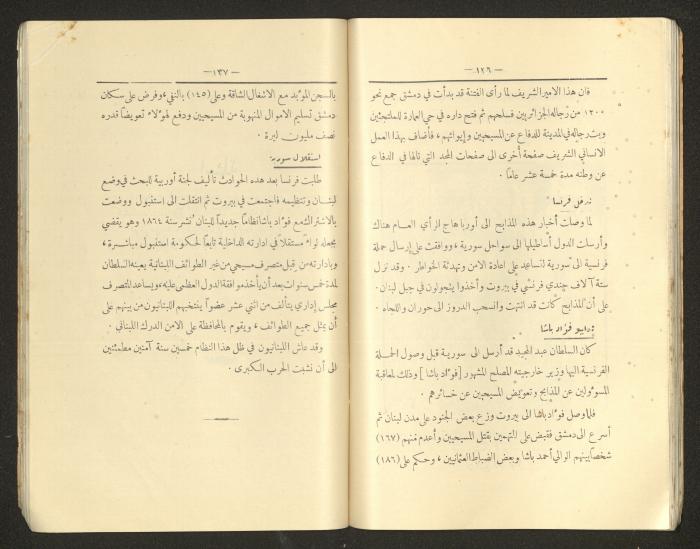 — ١٢٦ —
فان هذا الامير الشريف لما رأى الفتنة قد بدأت في دمشق جمع نحو
١٢٠٠ من رجاله الجزائريين فسلحهم ثم فتح داره في حي العمارة للملتجئين
وبث رجاله في المدينة للدفاع عن المسيحيين وإيوائهم ، فأضاف بهذا العمل
الانساني الشريف صفحة أخرى الى صفحات المجد التي نالها في الدفاع
عن وطنه مدة خمسة عشر عاماً .
تدخل فرنسا
لما وصلت أخبار هذه المذابح الى أوربا هاج الرأي العام هناك
وأرسلت الدول أساطيلها الى سواحل سورية ، ووافقت على إرسال حملة
فرنسية الى سورية لتساعد على اعادة الامن وتهدئة الخواطر . وقد نزل
ستة آلاف جندي فرنسي في بيروت وأخذوا يتجولون في جبل لبنان .
على أن المذابح كانت قد انتهت وانسحب الدروز الى حوران واللجاه .
تدابير فؤاد باشا
كان السلطان عبد المجيد قد أرسل الى سورية قبل وصول الحملة
الفرنسية اليها وزير خارجيته المصلح المشهور [ فؤاد باشا ] وذلك لمعاقبة
المسؤولين عن المذابح وتعويض المسيحيين عن خسائرهم .
فلما وصل فؤاد باشا الى بيروت وزع بعض الجنود على مدن لبنان ثم
أسرع الى دمشق فقبض على المتهمين بقتل المسيحيين وأعدم منهم (١٦٧)
شخصاً بينهم الوالي أحمد باشا وبعض الضباط العثمانيين ، وحكم على (١٨٦)
— ١٣٧ —
بالسجن المؤبد مع الاشغال الشاقة وعلى (١٤٥) بالنفي ، وفرض على سكان
دمشق تسليم الاموال المنهوبة من المسيحيين ودفع لهؤلاء تعويضاً قدره
نصف مليون ليرة .
استقلال سورية
طلبت فرنسا بعد هذه الحوادث تأليف لجنة أوربية للبحث في وضع
لبنان وتنظيمه فاجتمعت في بيروت ثم انتقلت الى استنبول ووضعت
بالاشتراك مع فؤاد باشا نظاماً جديداً للبنان نشر سنة ١٨٦٤ وهو يقضي
بجعله لواء مستقلاً في ادارته الداخلية تابعاً لحكومة استنبول مباشرة ،
وبادارته من قبل متصرف مسيحي من غير الطوائف اللبنانية يعينه السلطان
لمدة خمس سنوات بعد أن يأخذ موافقة الدول العظمى عليه ، ويساعد المتصرف
مجلس إداري يتألف من اثني عشر عضواً ينتخبهم اللبنانيون من بينهم على
أن يمثل جميع الطوائف ، ويقوم بالمحافظة على الامن الدرك اللبناني .
وقد عاش اللبنانيون في ظل هذا النظام خمسين سنة آمنين مطمئنين
الى أن نشبت الحرب الكبرى .